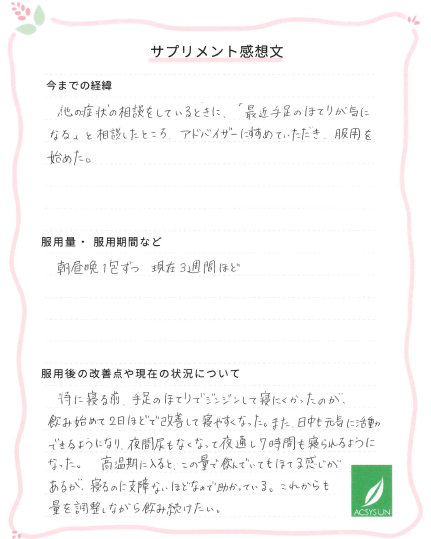 サプリメント感想文
今までの経緯
他の症状の相談をしているときに、「最近手足のほてりが気に
なる」と相談したところ、アドバイザーに薦めていただき、服用を
始めた。
服用量・ 服用期間など
朝昼晩1包ずつ 現在3週間ほど
服用後の改善点や現在の状況について
特に寝る前、手足のほてりでジンジンして寝にくかったのが、
飲み始めて2日ほどで改善して寝やすくなった。また、日中も元気に活動
できるようになり、夜間尿もなくなって夜通し7時間も寝られるように
なった。 高温期に入ると、この量で飲んでいてもほてる感じが
あるが、寝るのに支障ないほどなので助かっている。これからも
量を調整しながら飲み続けたい。
ACSYSUN